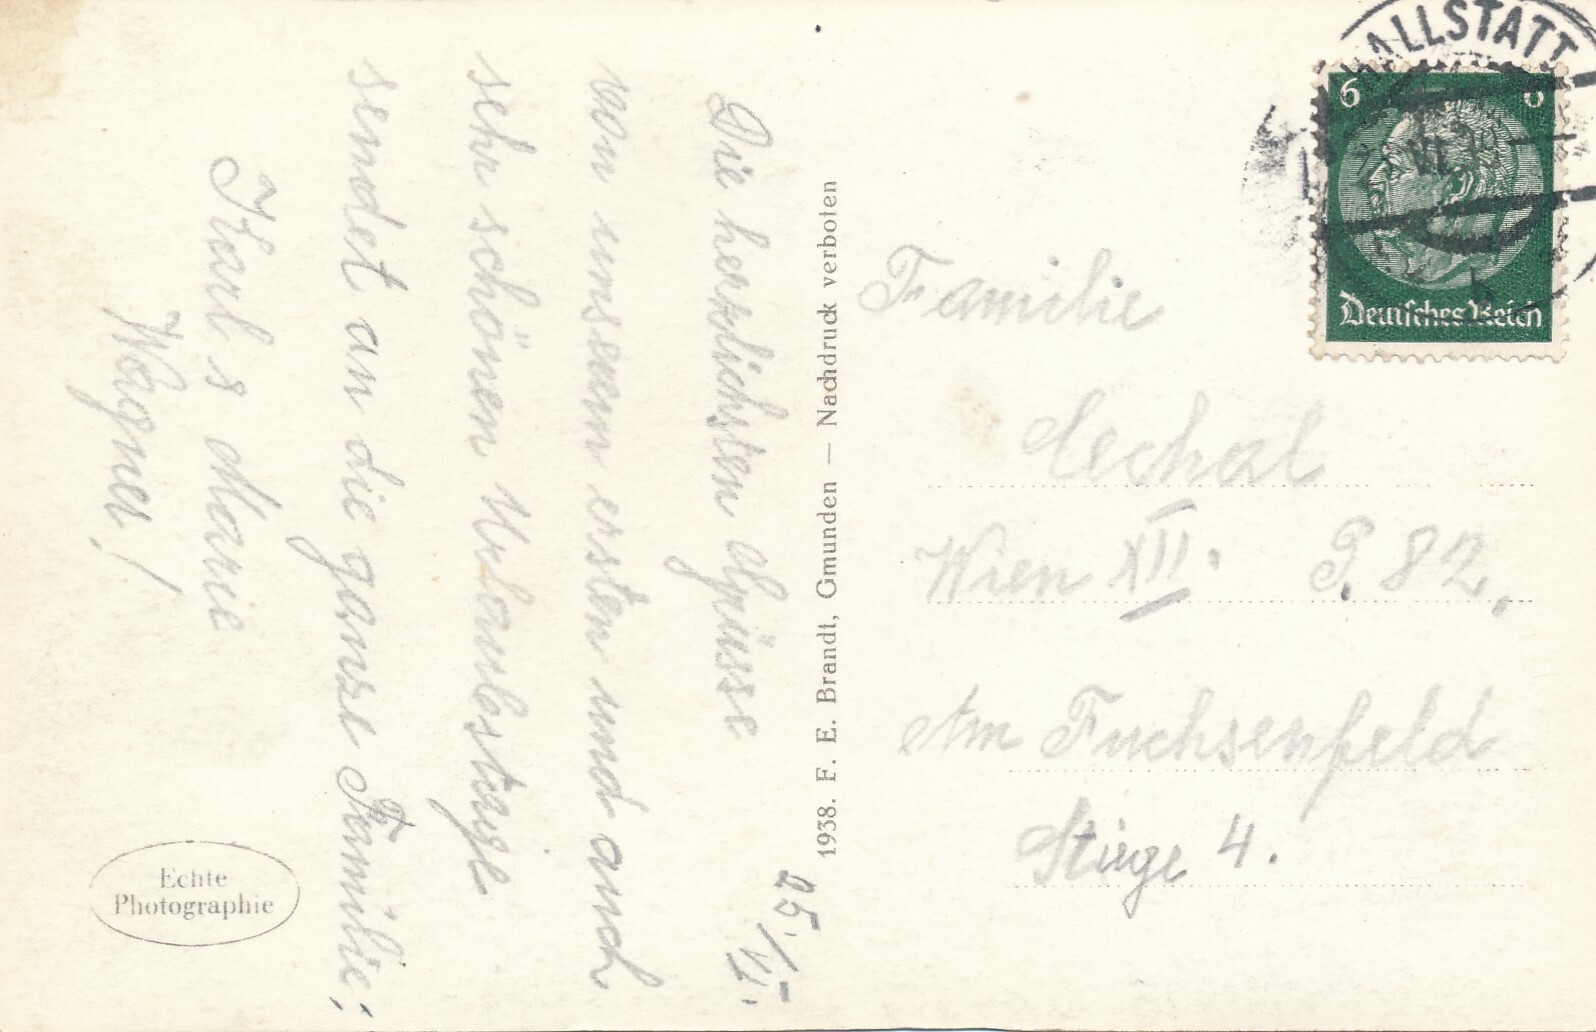 25./VI.
Die herzlichsten Grüsse
von unserem ersten und auch
sehr schönen Urlaubstage
sendet an die ganze Familie;
Karl s Marie
Wagner!
Echte
Photographie
1938. F. E. Brandt, Gmunden — Nachdruck verboten
HALLSTATT
VI
b
6 6
Deutsches Reich
Familie
Wien XII. P. 82.
Am Fuchsenfeld
Stiege 4.